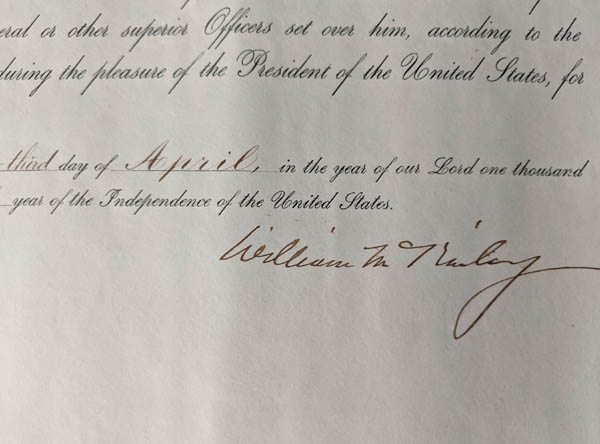 eral or other superior Officers set over him, according to the
during the pleasure of the President of the United States, for
-third day of April, in the year of our Lord one thousand
year of the Independence of the United States.
William McKinley